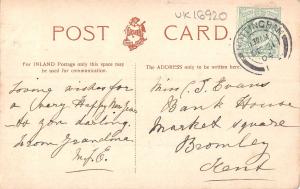 UK16920
POST CARD.
For INLAND Postage only this space may
be used for communication.
The ADDRESS only to be written here.
Loving wishes for
a very Happy New Year
to you darling.
From Grandma
Miss C. J. Evans
Bank House
Market Square
Bromley
Kent